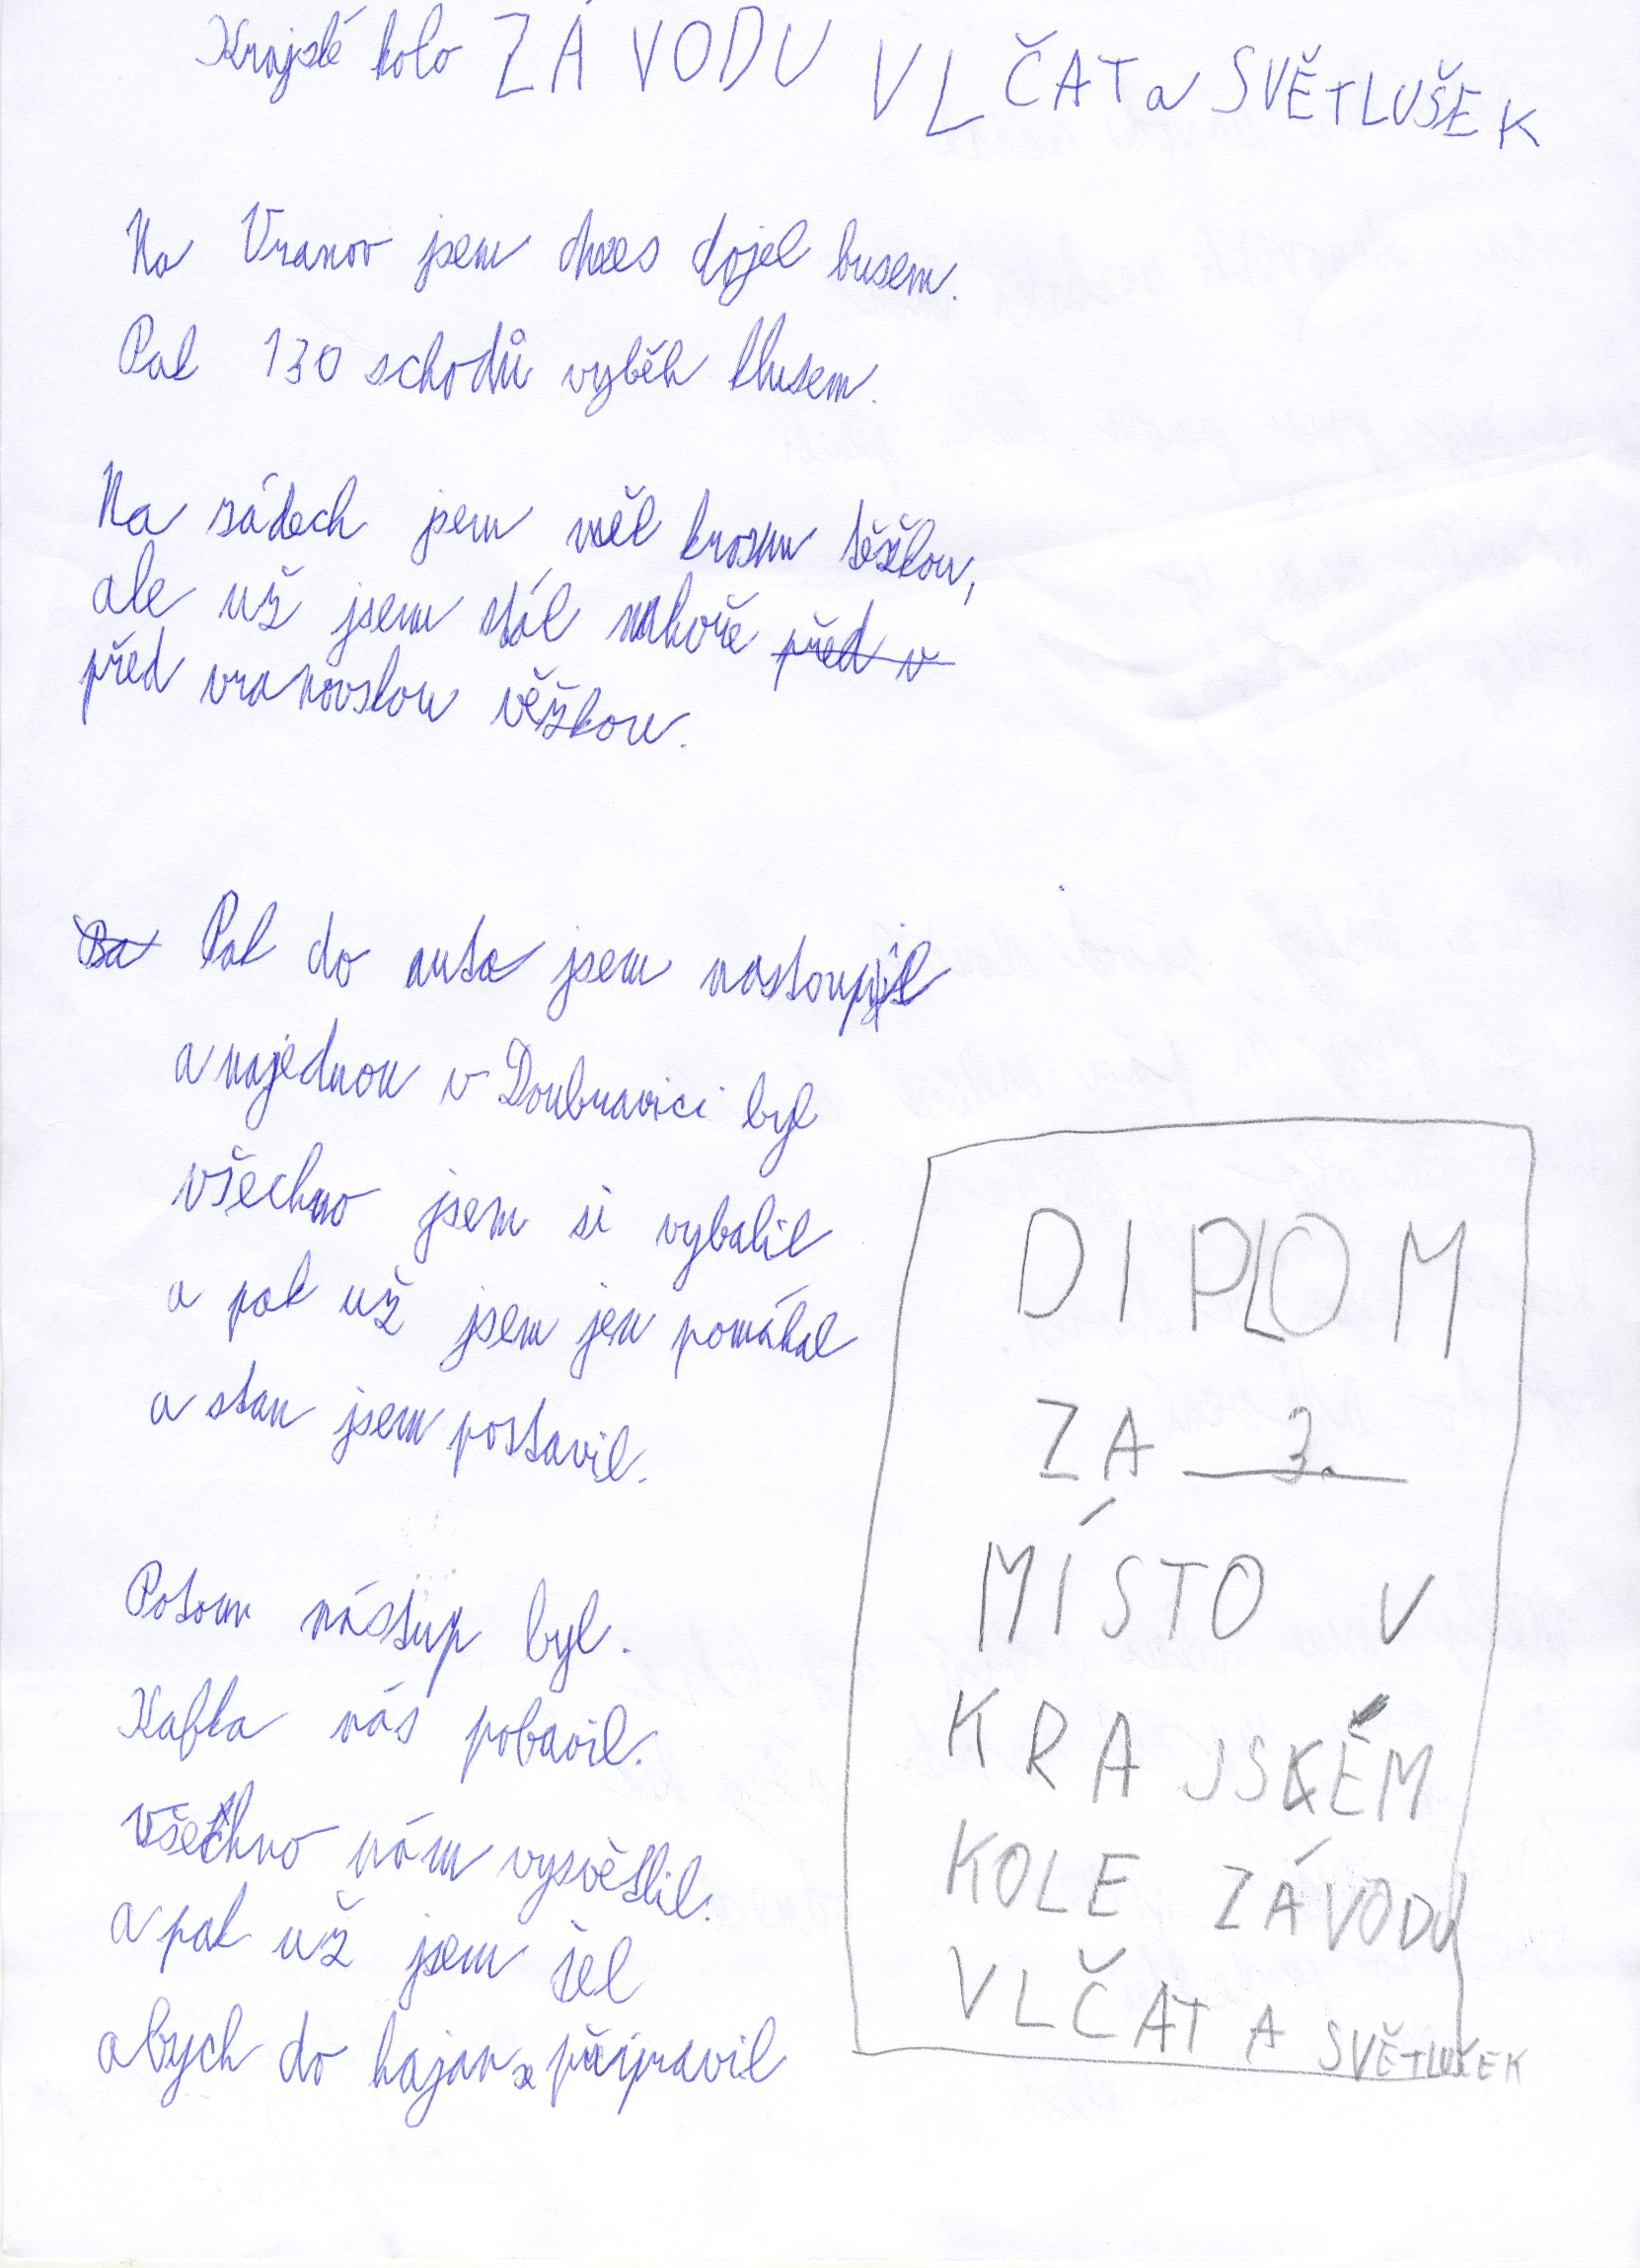 Krajské kolo ZÁVODU VLČAT a SVĚTLUŠEK
Na Vranov jsem dnes dojel busem.
Pak 130 schodů vyběh klusem.
Na zádech jsem měl krosnu těžkou,
ale už jsem stál nahoře před v
před vranovskou věžkou.
Pak do auta jsem nastoupil
a najednou v Doubravici byl
všechno jsem si vybalil
a pak už jsem jen pomáhal
a stan jsem postavil.
Potom nástup byl.
Kafka nás pobavil.
všechno nám vysvětlil.
a pak už jsem šel
abych do hajan se připravil
DIPLOM
ZA 3.
MÍSTO V
KRAJSKÉM
KOLE ZÁVODU
VLČAT A SVĚTLUŠEK